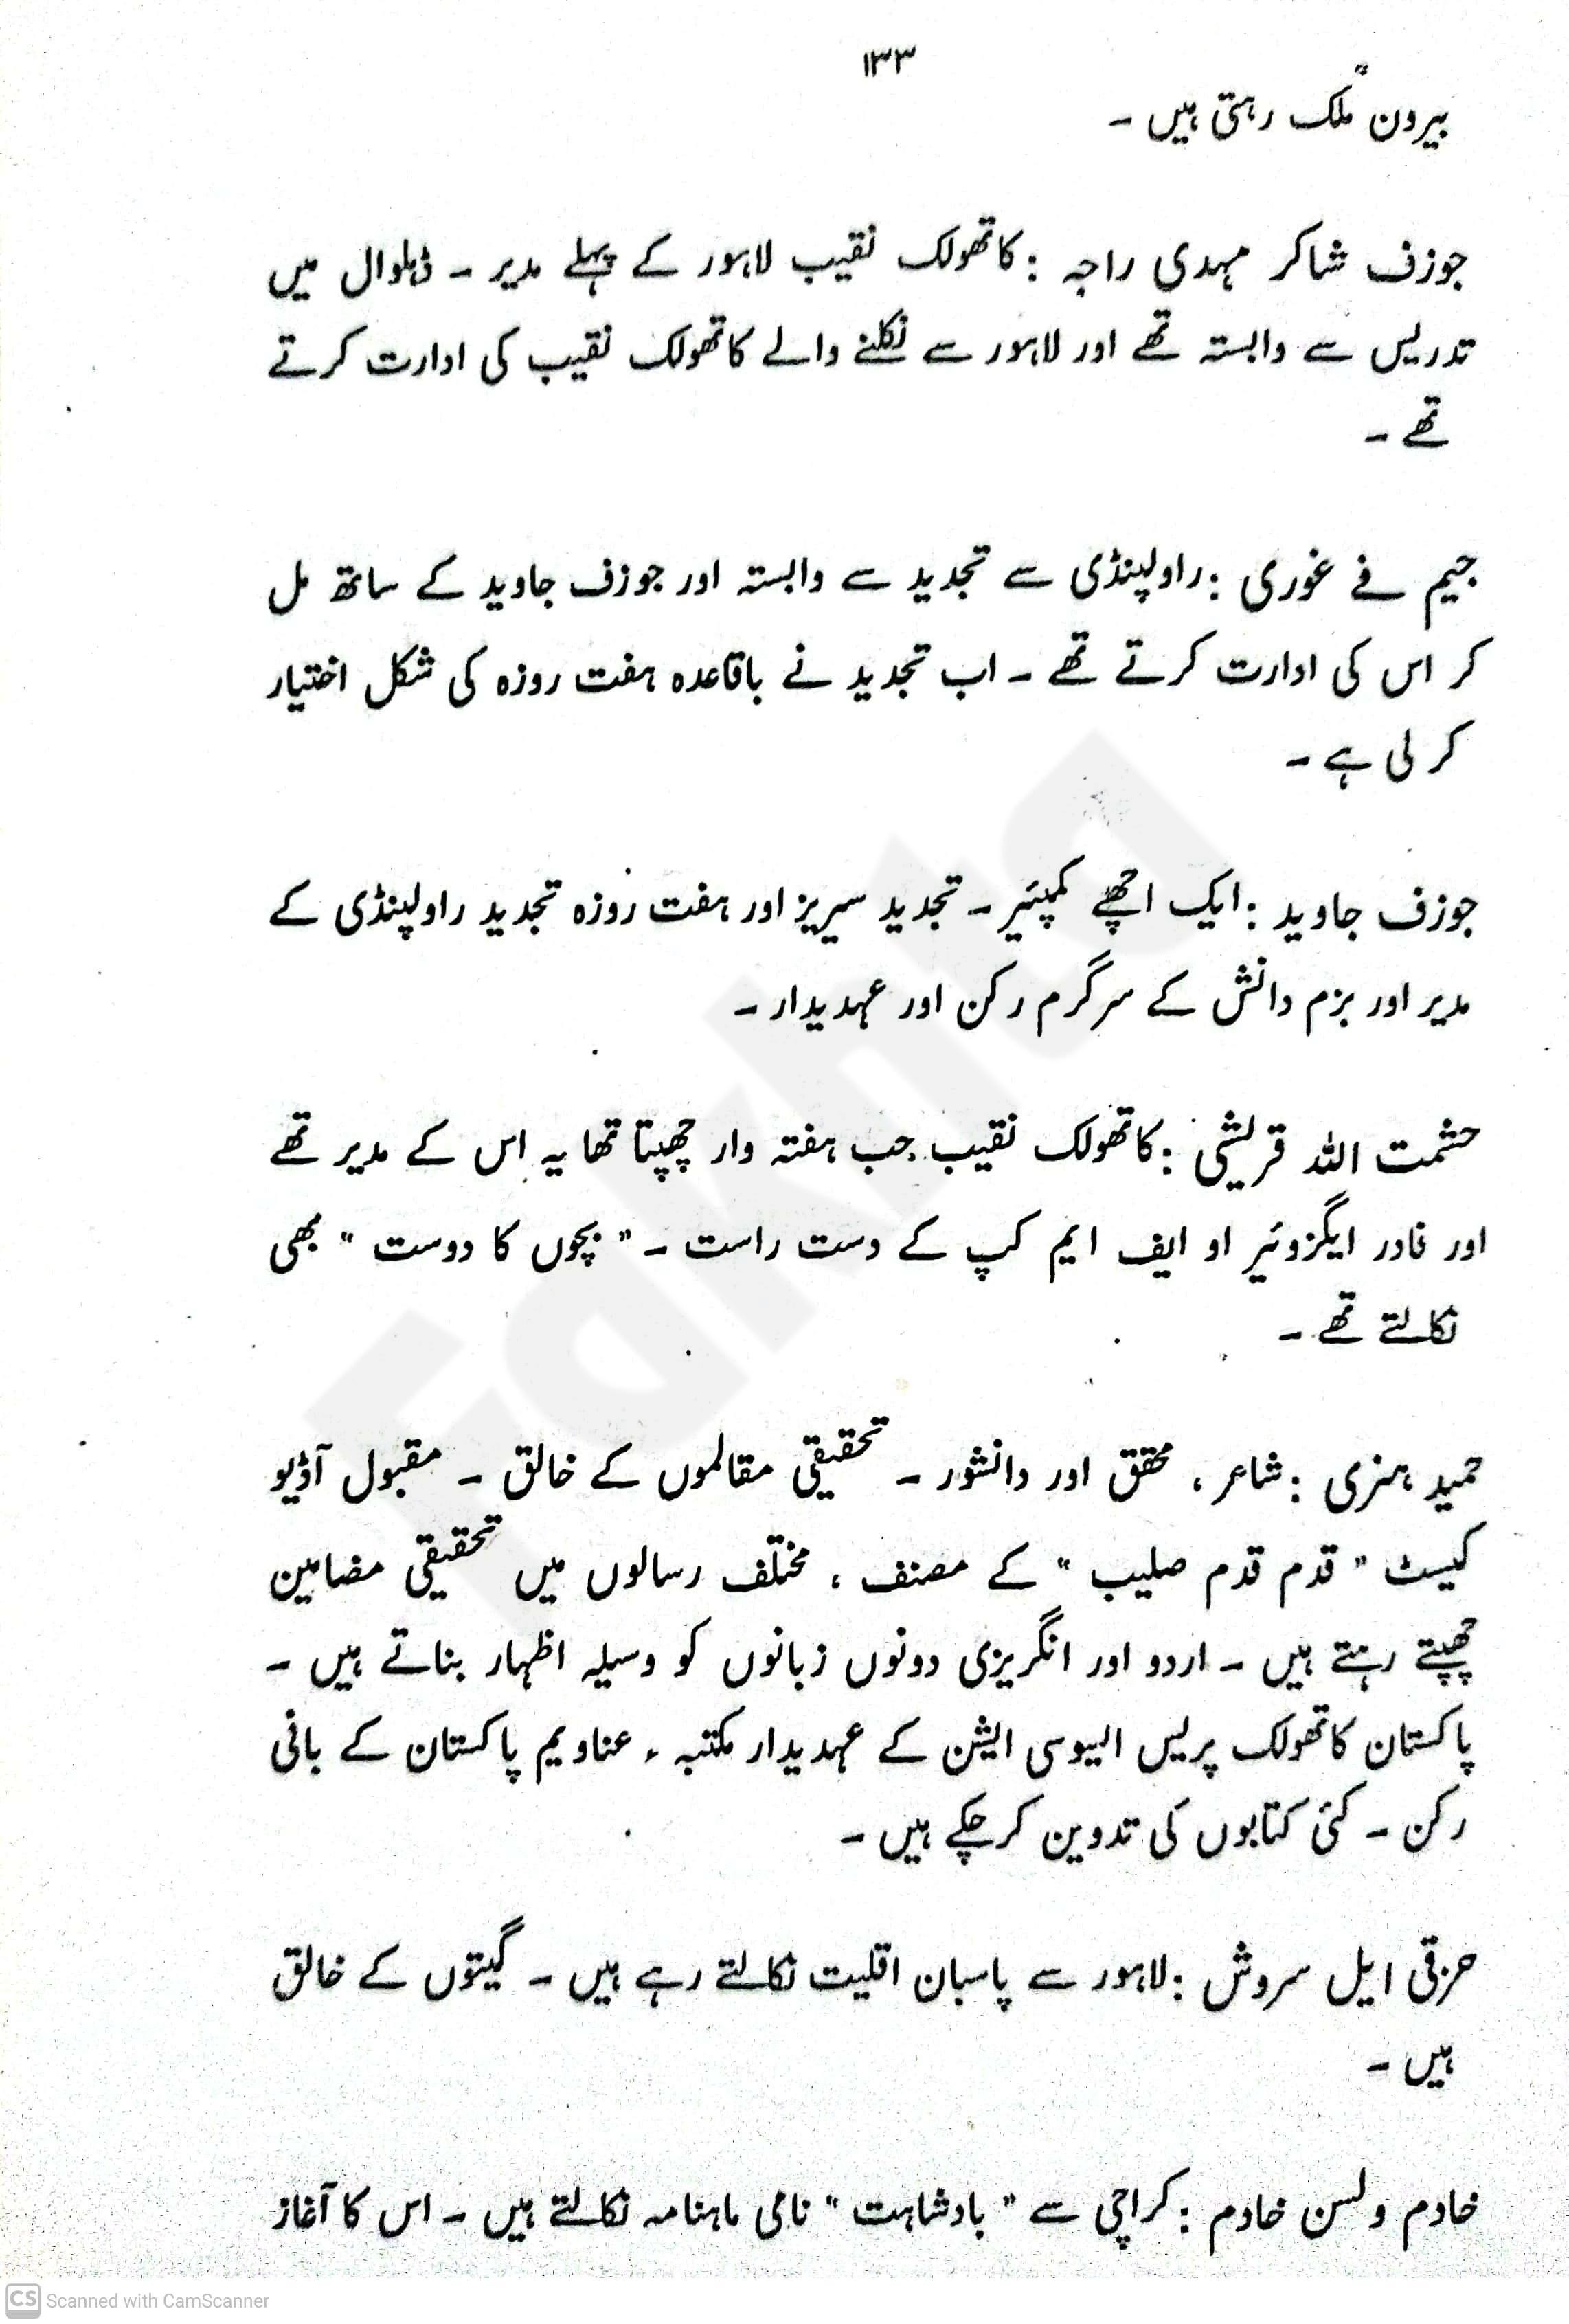 ۱۳۳
بیرون ملک رہتی ہیں ۔
جوزف شاکر مہدی راجہ : کاتھولک نقیب لاہور کے پہلے مدیر ۔ ڈلوال میں
تدریس سے وابستہ تھے اور لاہور سے نکلنے والے کاتھولک نقیب کی ادارت کرتے
تھے ۔
جیم فے غوری : راولپنڈی سے تجدید سے وابستہ اور جوزف جاوید کے ساتھ مل
کر اس کی ادارت کرتے تھے ۔ اب تجدید نے باقاعدہ ہفت روزہ کی شکل اختیار
کر لی ہے ۔
جوزف جاوید : ایک اچھے کمپئیر ۔ تجدید سیریز اور ہفت روزہ تجدید راولپنڈی کے
مدیر اور بزم دانش کے سرگرم رکن اور عہدیدار ۔
حشمت اللہ قریشی : کاتھولک نقیب جب ہفتہ وار چھپتا تھا یہ اس کے مدیر تھے
اور فادر ایگزوئیر او ایف ایم کپ کے دست راست ۔ " بچوں کا دوست " بھی
نکالتے تھے ۔
حمید ہنری : شاعر ، محقق اور دانشور ۔ تحقیقی مقالموں کے خالق ۔ مقبول آڈیو
کیسٹ " قدم قدم صلیب " کے مصنف ، مختلف رسالوں میں تحقیقی مضامین
چھپتے رہتے ہیں ۔ اردو اور انگریزی دونوں زبانوں کو وسیلہ اظہار بناتے ہیں ۔
پاکستان کاتھولک پریس ایسوسی ایشن کے عہدیدار مکتبہ ء عناویم پاکستان کے بانی
رکن ۔ کئی کتابوں کی تدوین کر چکے ہیں ۔
حزقی ایل سروش : لاہور سے پاسبان اقلیت نکالتے رہے ہیں ۔ گیتوں کے خالق
ہیں ۔
خادم ولسن خادم : کراچی سے " بادشاہت " نامی ماہنامہ نکالتے ہیں ۔ اس کا آغاز
Fakhta
CS Scanned with CamScanner